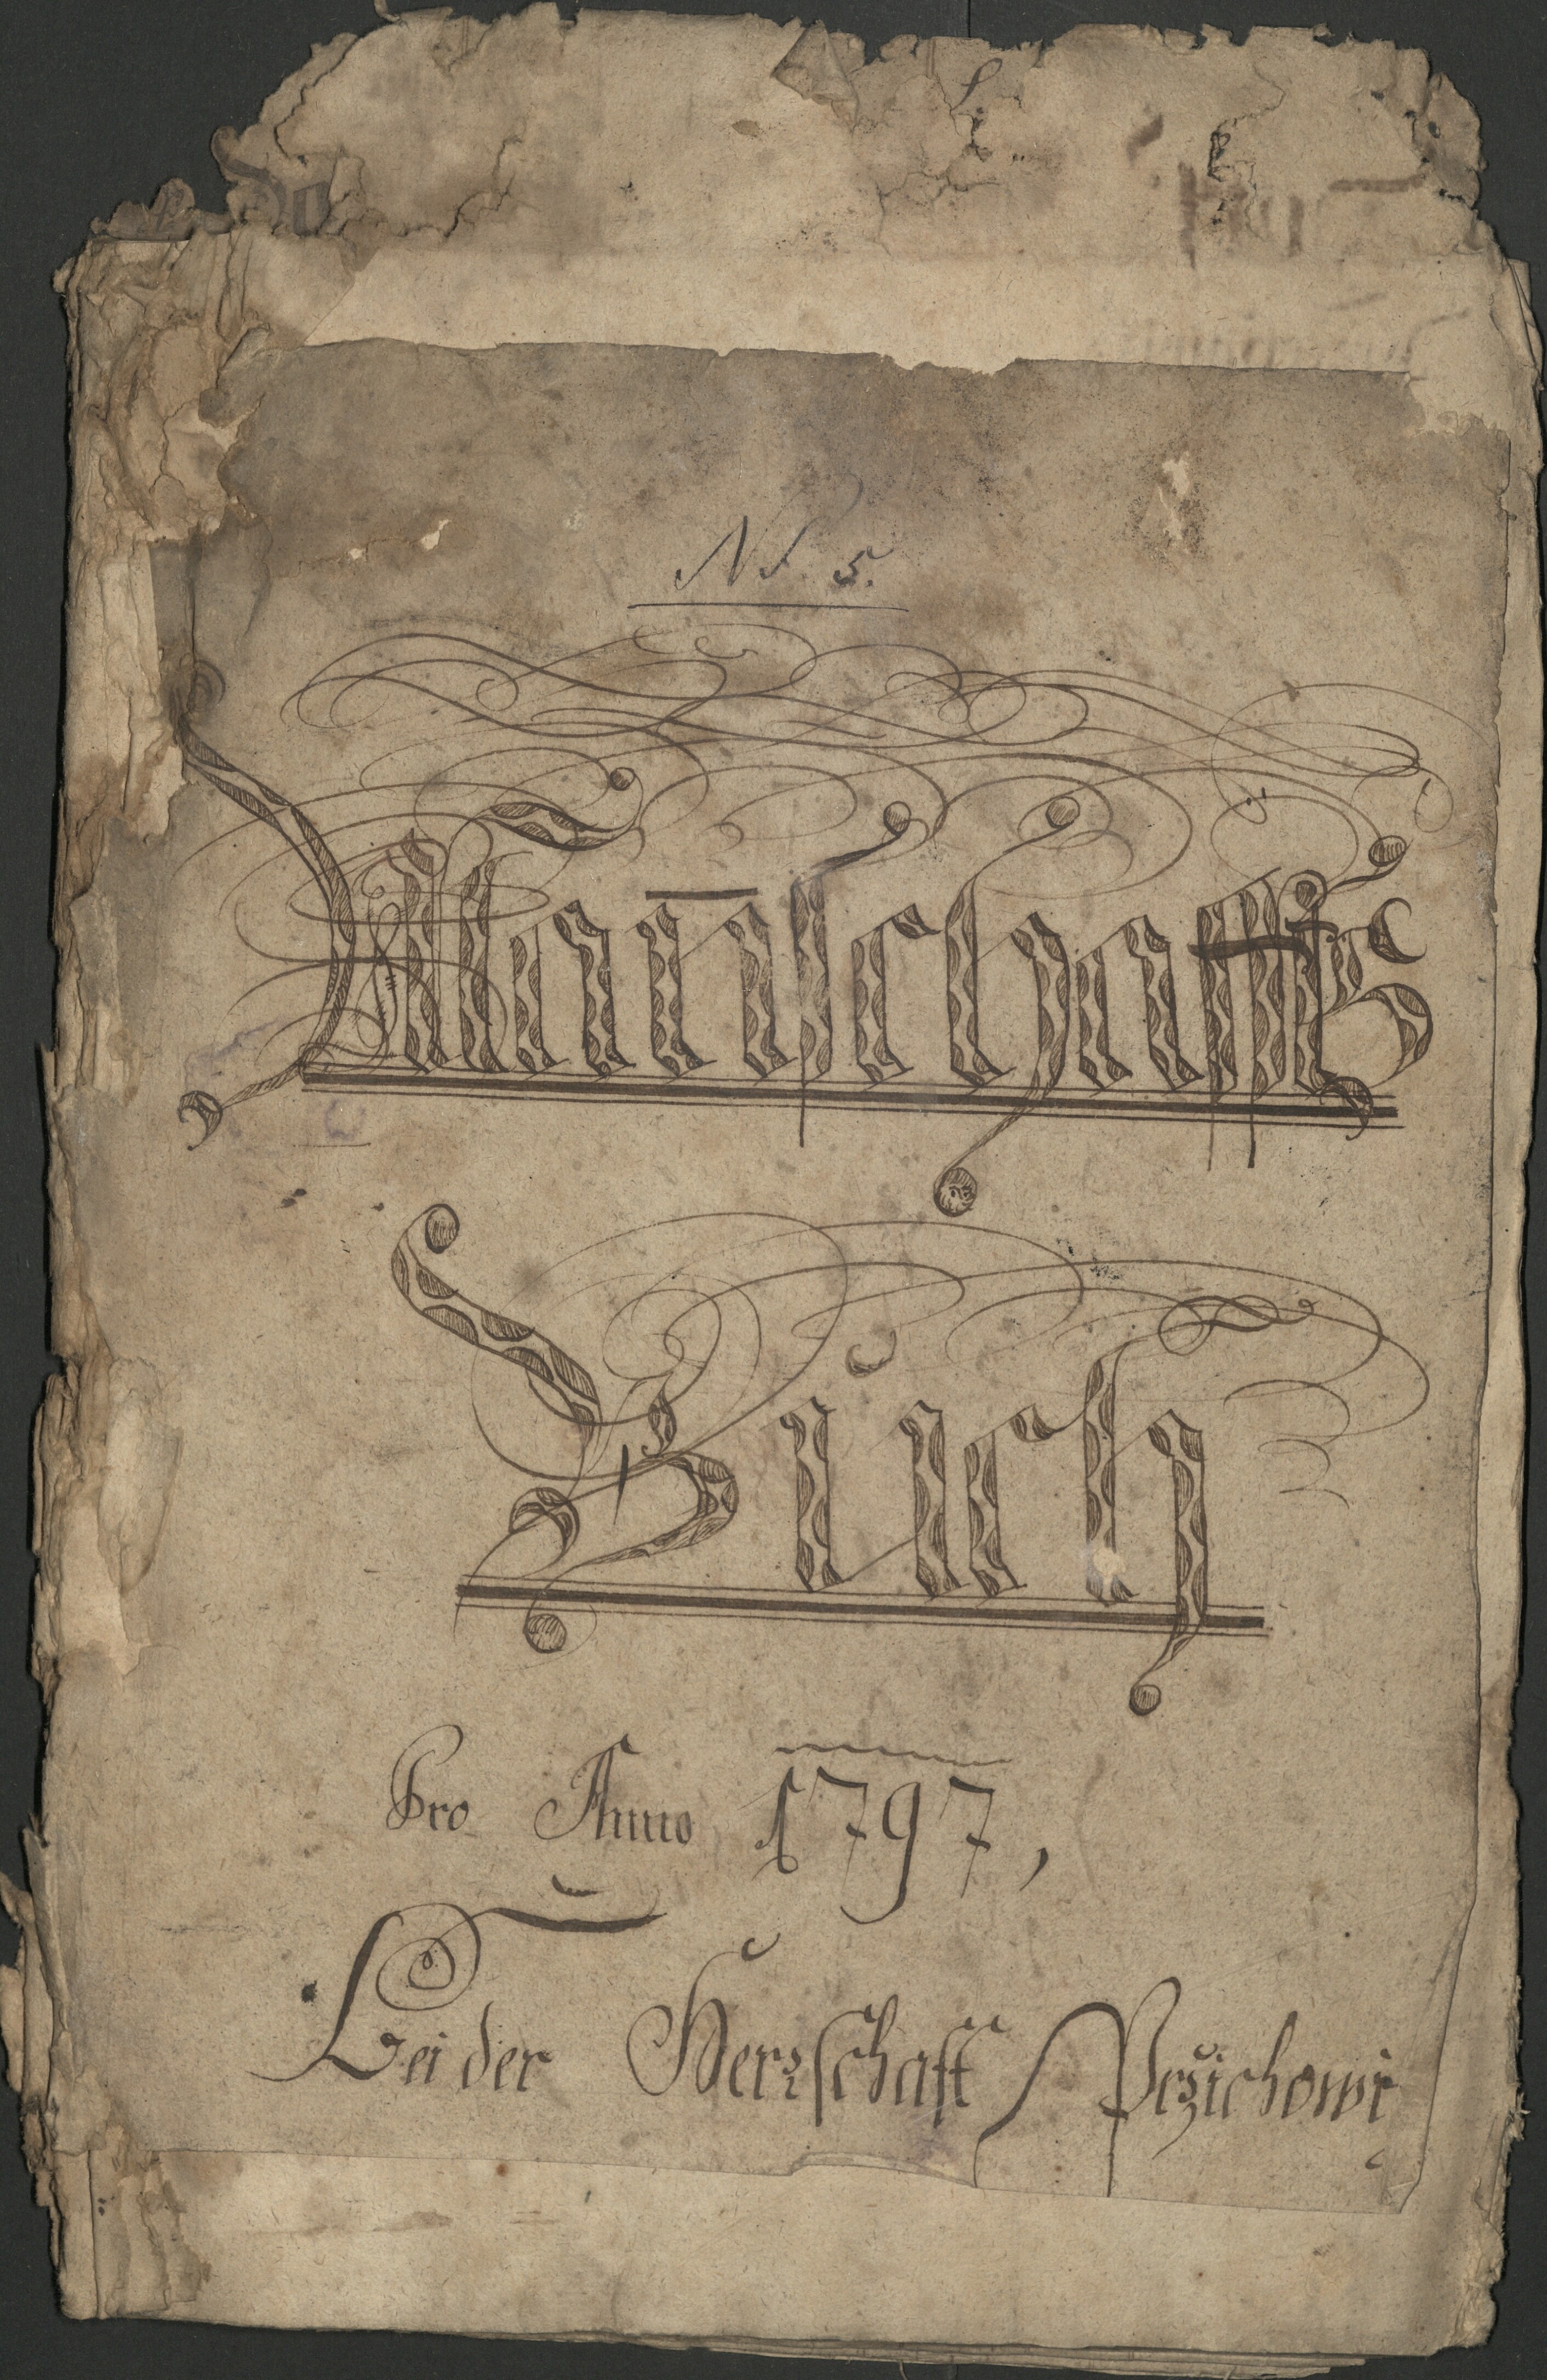 Nr. 5.
Man̄schafts
Buch
Pro Anno 1797,
Bei der Herrschaft Pržichowi